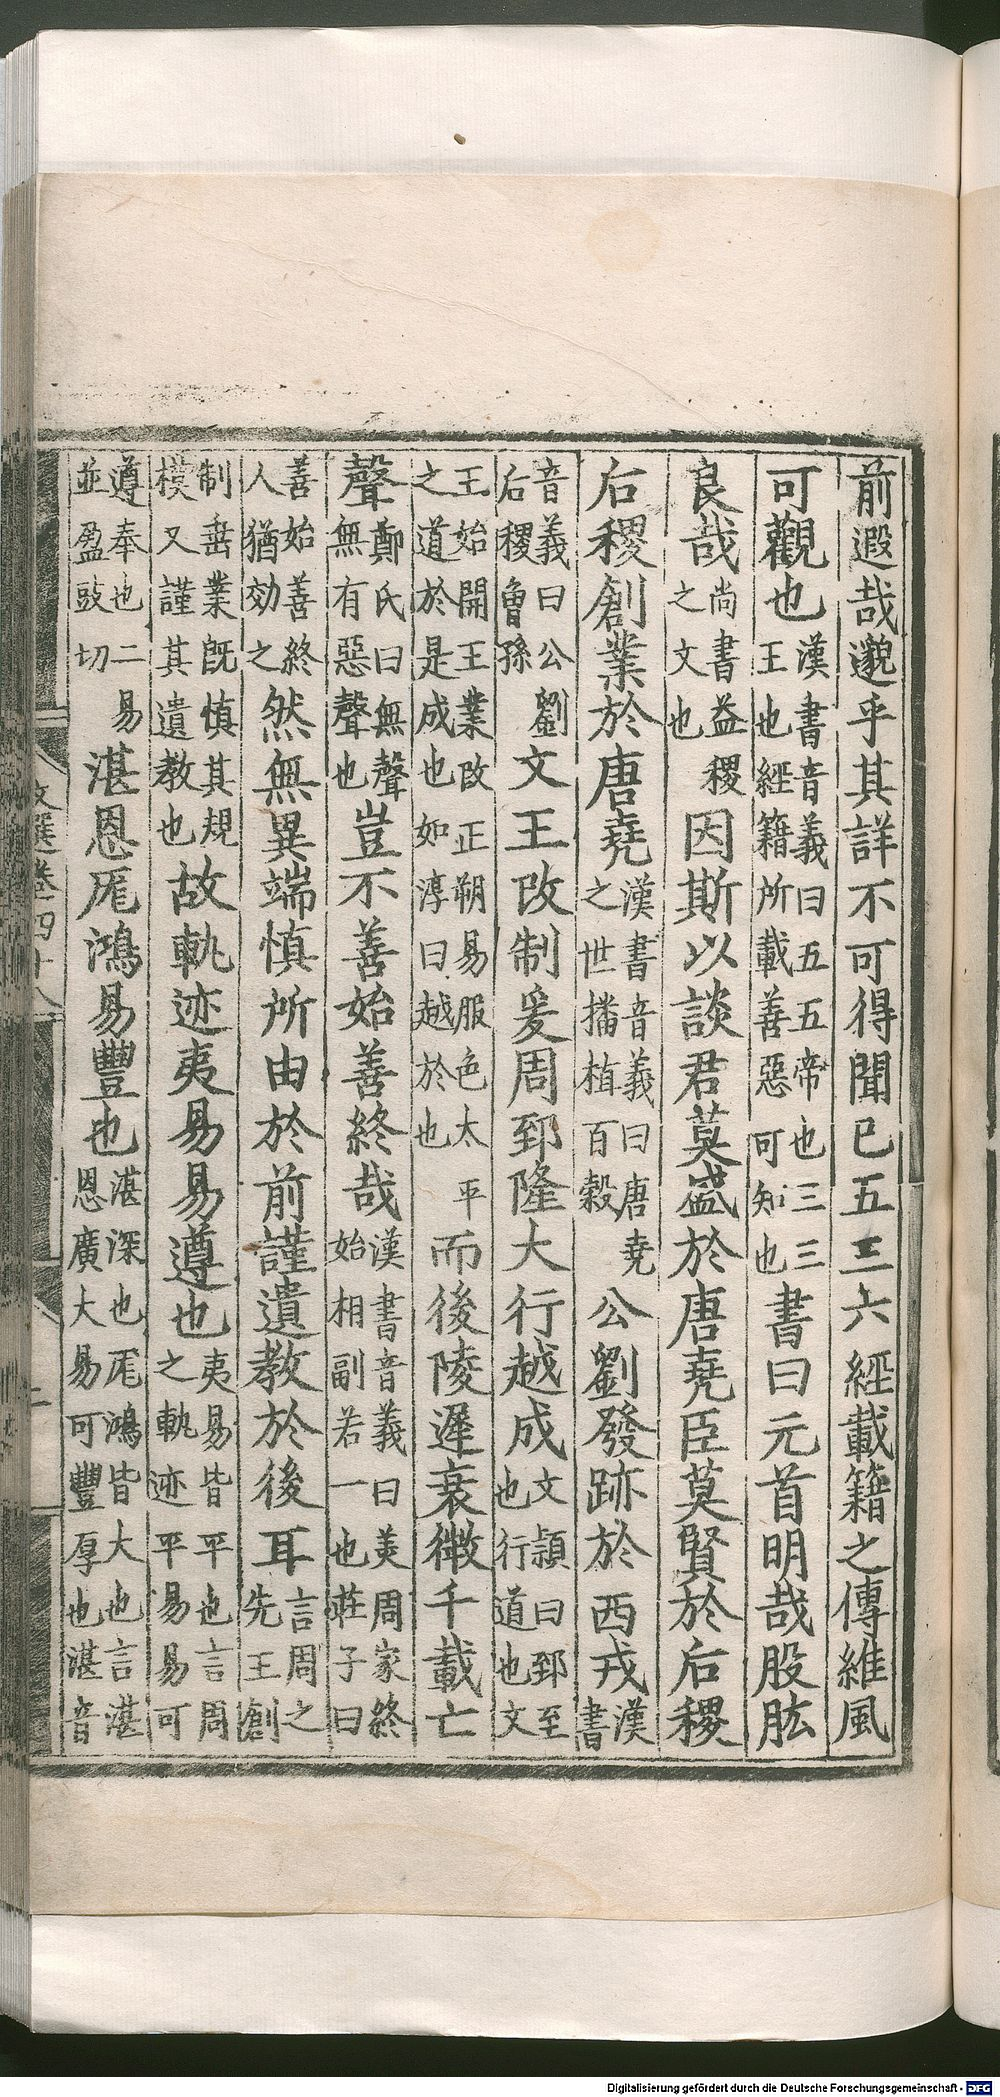 前遐哉邈乎其詳不可得聞已五三六經載籍之傳維風
可觀也漢書音義曰五五帝也三三王也經籍所載善惡可知也書曰元首明哉股肱
良哉尚書益稷之文也因斯以談君莫盛於唐堯臣莫賢於后稷
后稷創業於唐堯漢書音義曰唐堯之世播植百穀公劉發跡於西戎漢書
音義曰公劉后稷曾孫文王改制爰周郅隆大行越成文穎曰郅至也行道也文
王始開王業改正朔易服色太平之道於是成也如淳曰越於也而後陵遲衰微千載亡
聲鄭氏曰無聲無有惡聲也豈不善始善終哉漢書音義曰美周家終始相副若一也莊子曰
善始善終人猶効之然無異端慎所由於前謹遺教於後耳言周之先王創
制垂業旣慎其規模又謹其遺教也故軌迹夷易易遵也夷易皆平也言周之軌迹平易易可
遵奉也二易並盈豉切湛恩厖鴻易豐也湛深也厖鴻皆大也言湛恩廣大易可豐厚也湛音
文選卷四十八
Digitalisierung gefördert durch die Deutsche Forschungsgemeinschaft - DFG